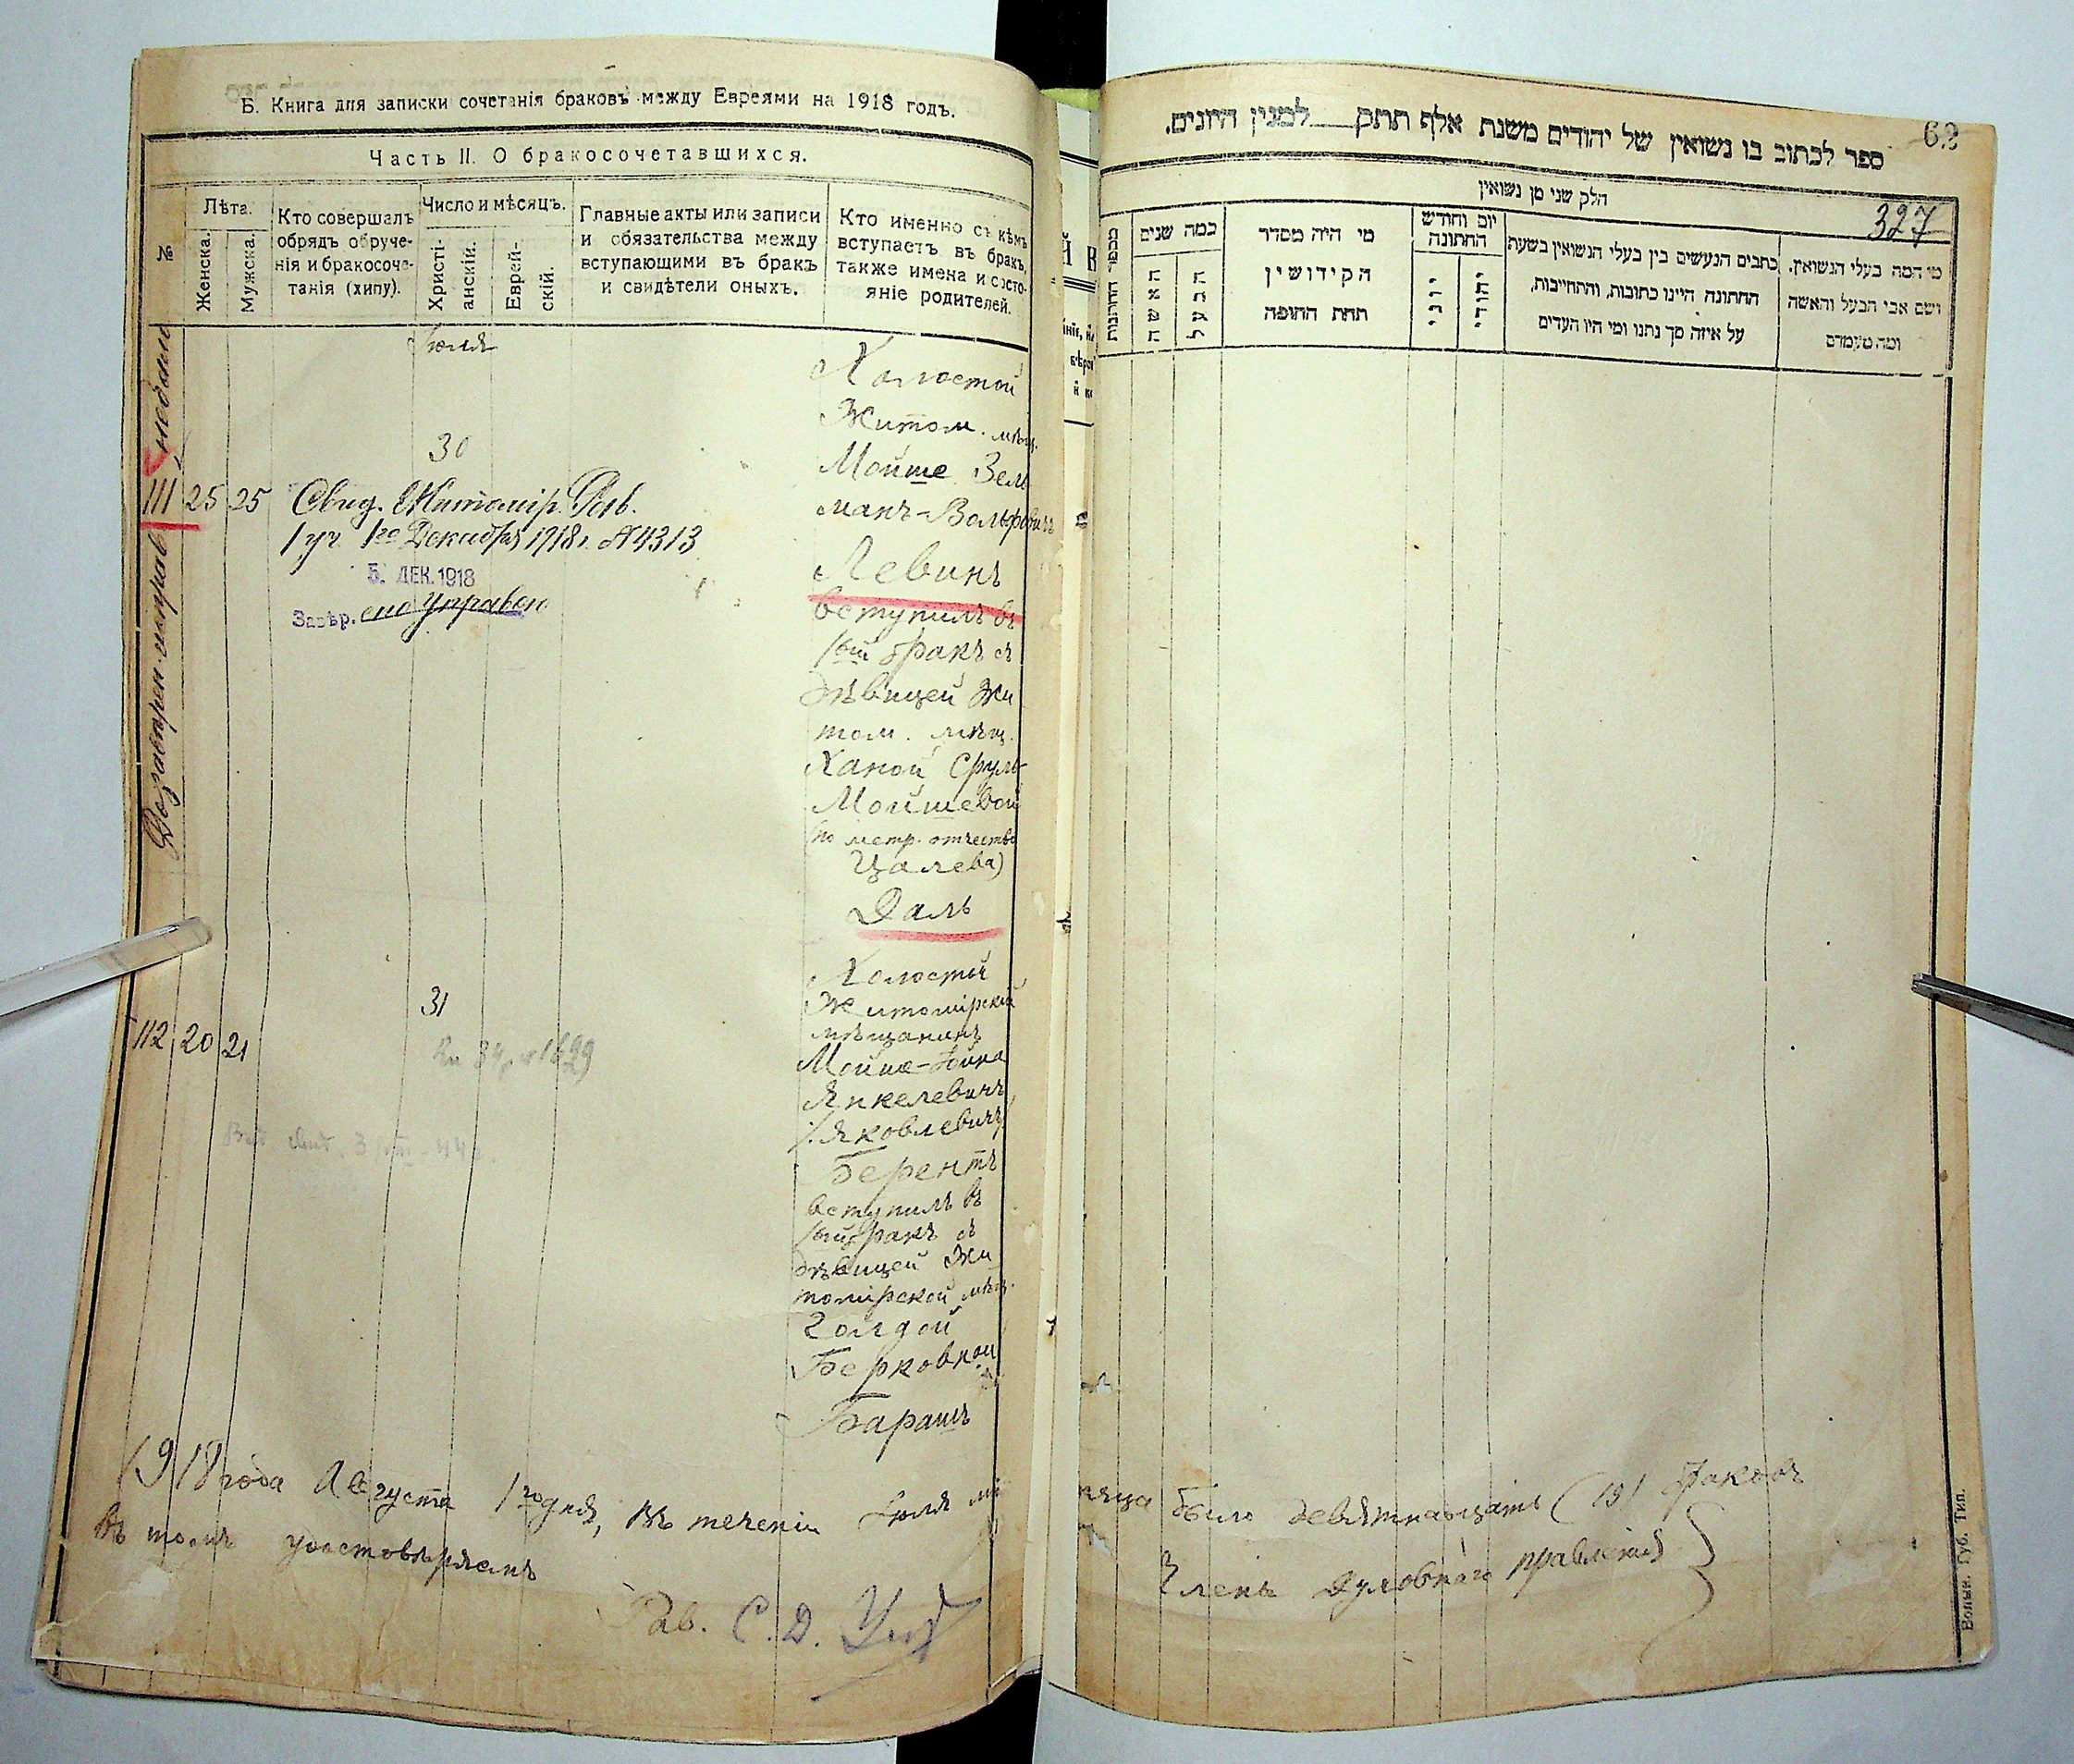 Б. Книга для записки сочетанія браковъ между Евреями на 1918 годъ.
Часть II. О бракосочетавшихся.
№
Лѣта.
Женска.
Мужска.
Кто совершалъ
обрядъ обруче-
нія и бракосоче-
танія (хипу).
Число и мѣсяцъ.
Христі-
анскій.
Еврей-
скій.
Главные акты или записи
и обязательства между
вступающими въ бракъ
и свидѣтели оныхъ.
Кто именно съ кѣмъ
вступаетъ въ бракъ,
также имена и состо-
яніе родителей.
Іюля
30
111 25 25
Свид. Житомір. Рав.
1 уч. 1го Декабря 1918 г. №4313
5. ДЕК. 1918
Завѣр.
Холостой
Житом. мѣщ.
Мойше Зель
манъ-Вольфовичъ
Левинъ
вступилъ въ
1ый бракъ съ
дѣвицей Жи
том. мѣщ.
Ханой Сруль
Мойшевой
(по метр. отчество
Цалева)
Даль
31
112 20 21
Холостой
Житомірскій
мѣщанинъ
Мойше-Хойна
Янкелевичъ
Яковлевичъ
Берентъ
вступилъ въ
1ый бракъ съ
дѣвицей Жи
томірской мѣщ.
Голдой
Берковной
Барашъ
1918 года Августа 1го дня, въ теченіи Іюля мѣ
сяца было девятнадцать (19) браковъ
въ томъ удостовѣряемъ
Членъ Духовнаго правленія
Рав. С. Д.
63
ספר לכתוב בו נשואין של יהודים משנת אלף תתק למנין היונים.
חלק שני מן נשואין
327
מספר החתונות
כמה שנים
האשה
הבעל
מי היה מסדר
הקידושין
תחת החופה
יום וחודש
החתונה
יוני
יהודי
כתבים הנעשים בין בעלי הנשואין בשעת
החתונה היינו כתובות, והתחייבות,
על איזה סך נתנו ומי היו העדים
מי המה בעלי הנשואין.
ושם אבי הבעל והאשה
ומה מעמדם
Волын. Губ. Тип.